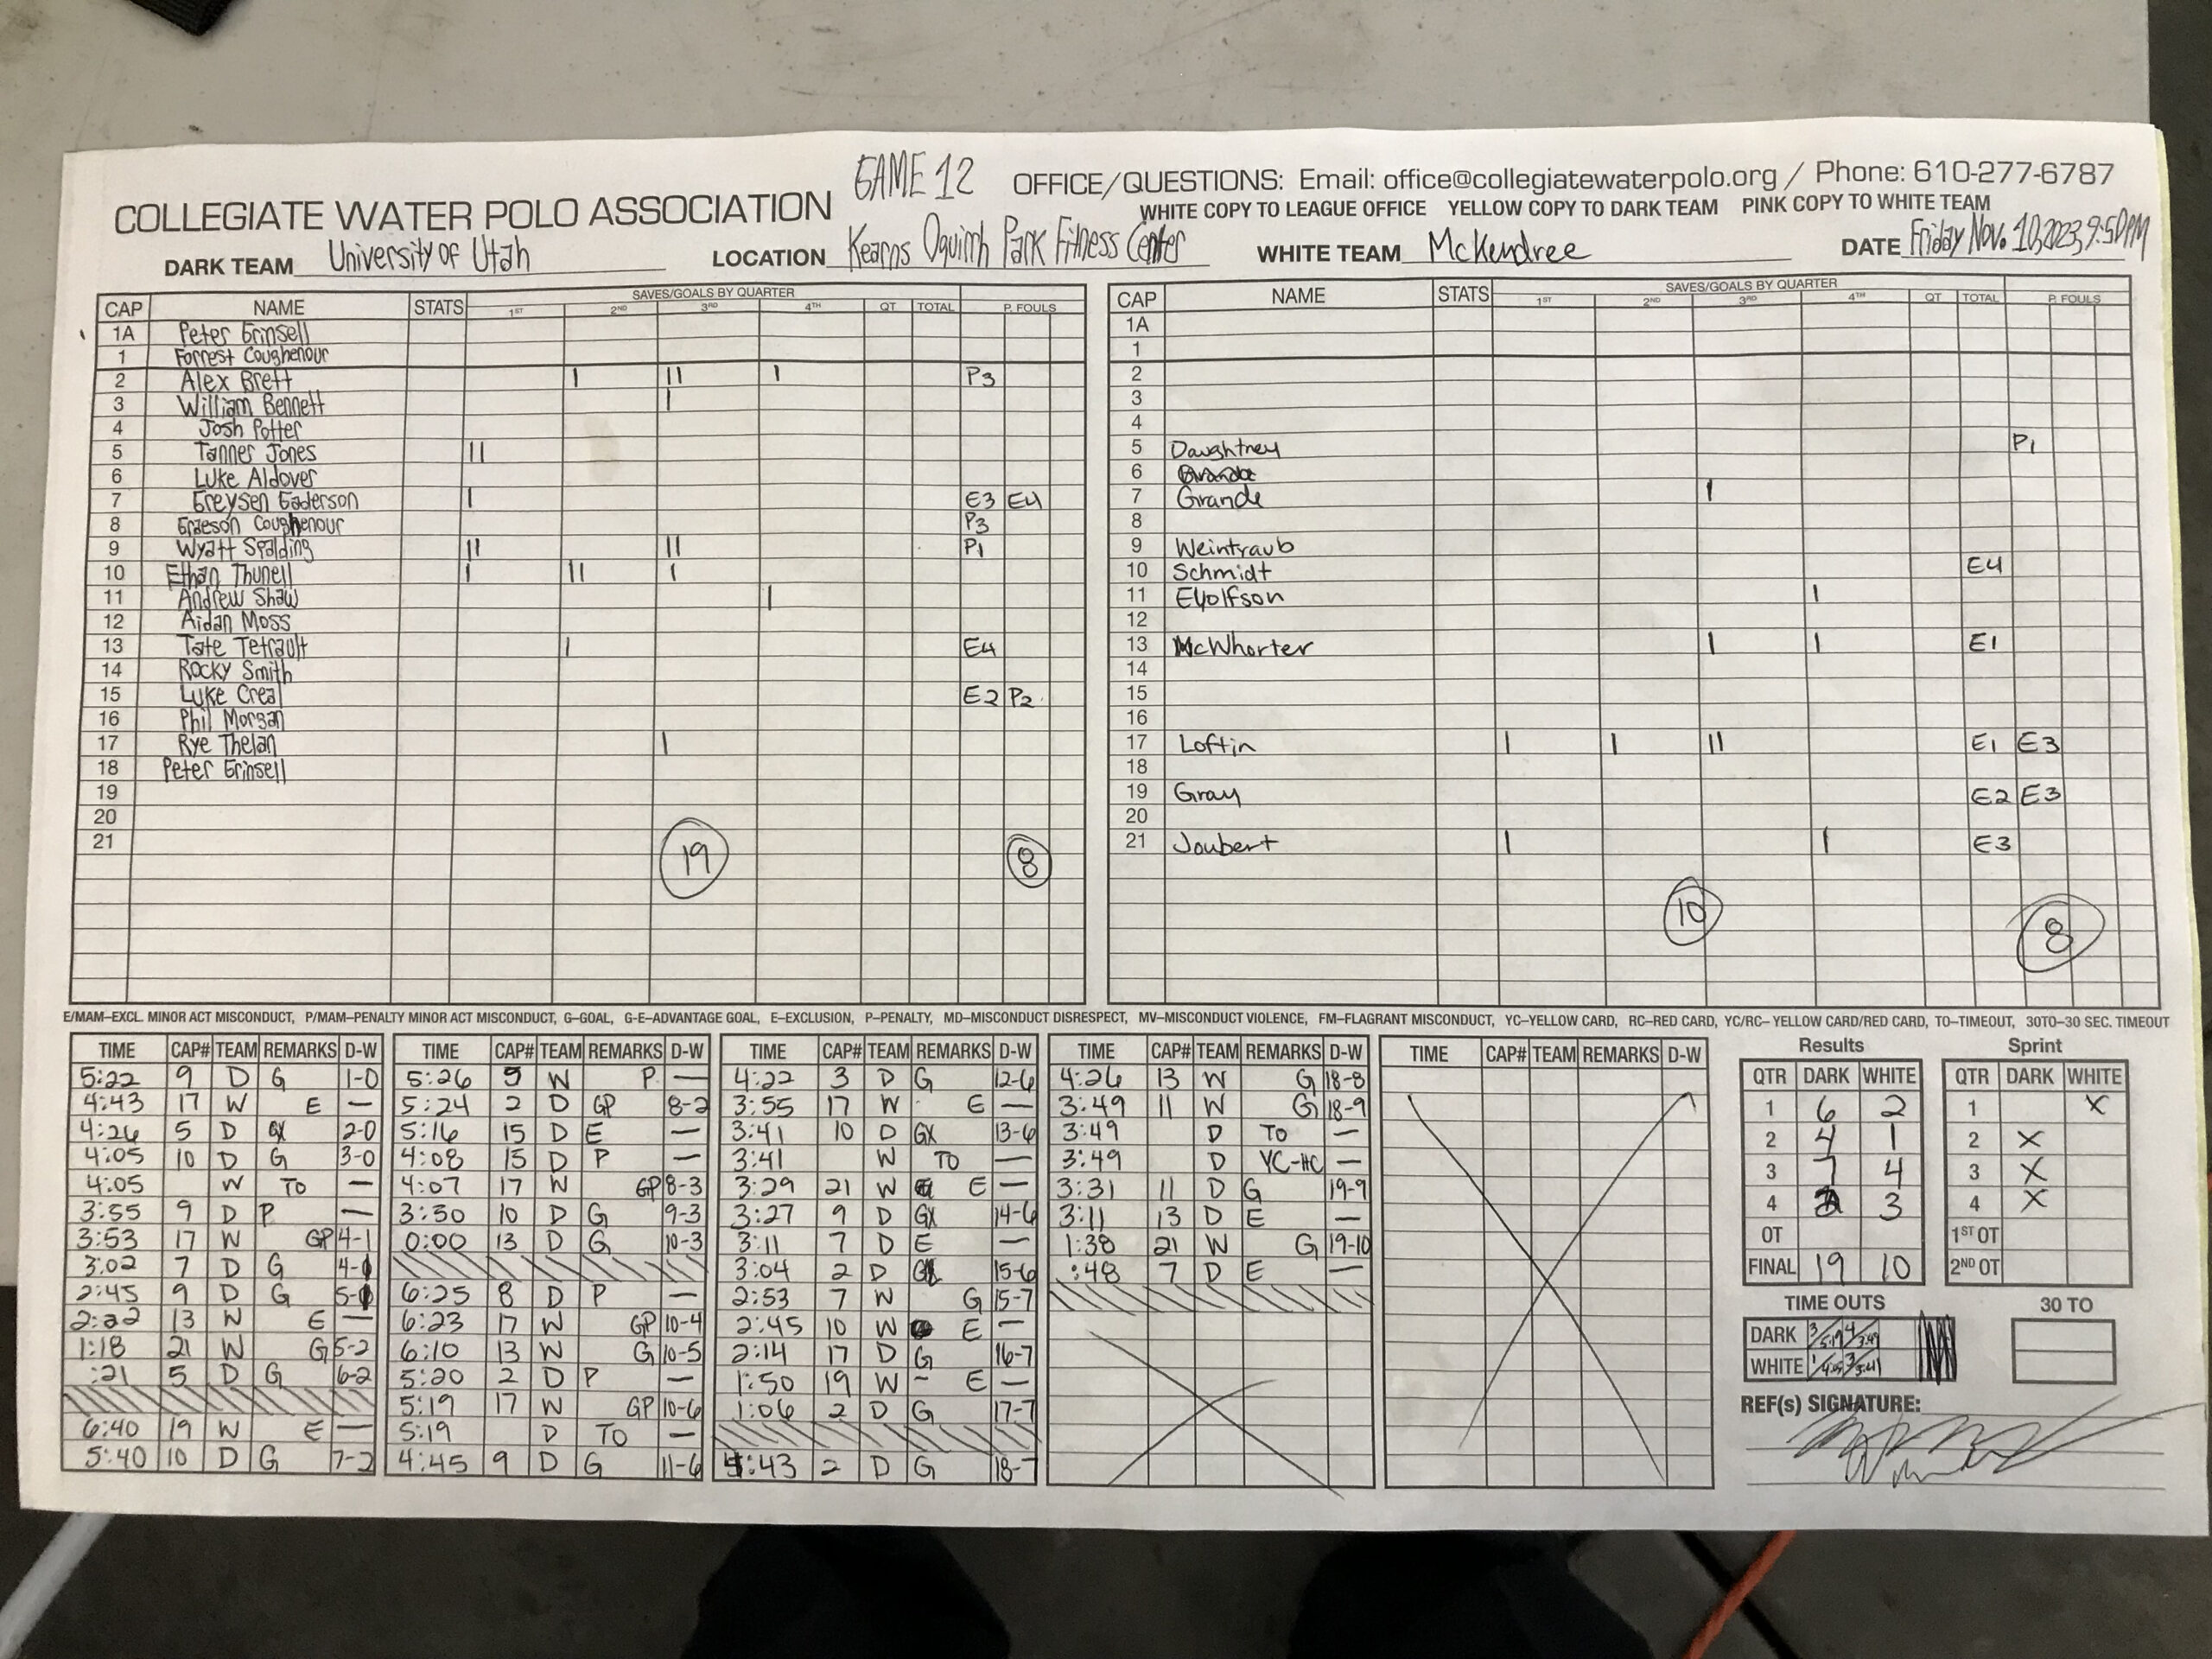 GAME 12
OFFICE/QUESTIONS: Email: office@collegiatewaterpolo.org / Phone: 610-277-6787
COLLEGIATE WATER POLO ASSOCIATION
WHITE COPY TO LEAGUE OFFICE YELLOW COPY TO DARK TEAM PINK COPY TO WHITE TEAM
DARK TEAM University of Utah LOCATION Kearns Oquirrh Park Fitness Center WHITE TEAM McKendree DATE Friday Nov. 10, 2023, 9:50PM
SAVES/GOALS BY QUARTER
CAP NAME STATS 1ST 2ND 3RD 4TH QT TOTAL P. FOULS
1A Peter Grinsell
1 Forrest Coughenour
2 Alex Brett I II I P3
3 William Bennett I
4 Josh Potter
5 Tanner Jones II
6 Luke Aldover
7 Greysen Gaderson I E3 E4
8 Graeson Coughenour P3
9 Wyatt Spalding II II P1
10 Ethan Thunell I II I
11 Andrew Shaw I
12 Aidan Moss
13 Tate Tetrault I E4
14 Rocky Smith
15 Luke Creal E2 P2
16 Phil Morgan
17 Rye Thelan I
18 Peter Grinsell
19
20
21
19 8
SAVES/GOALS BY QUARTER
CAP NAME STATS 1ST 2ND 3RD 4TH QT TOTAL P. FOULS
1A
1
2
3
4
5 Daughtrey P1
6
7 Grande I
8
9 Weintraub
10 Schmidt E4
11 Eyolfson I
12
13 McWhorter I I E1
14
15
16
17 Loftin I I II E1 E3
18
19 Gray E2 E3
20
21 Joubert I I E3
10 8
E/MAM–EXCL. MINOR ACT MISCONDUCT, P/MAM–PENALTY MINOR ACT MISCONDUCT, G–GOAL, G-E–ADVANTAGE GOAL, E–EXCLUSION, P–PENALTY, MD–MISCONDUCT DISRESPECT, MV–MISCONDUCT VIOLENCE, FM–FLAGRANT MISCONDUCT, YC–YELLOW CARD, RC–RED CARD, YC/RC– YELLOW CARD/RED CARD, TO–TIMEOUT, 30TO–30 SEC. TIMEOUT
TIME CAP# TEAM REMARKS D-W
5:22 9 D G 1-0
4:43 17 W E —
4:26 5 D GX 2-0
4:05 10 D G 3-0
4:05 W TO —
3:55 9 D P —
3:53 17 W GP 4-1
3:02 7 D G 4-1
2:45 9 D G 5-1
2:22 13 W E —
1:18 21 W G 5-2
:21 5 D G 6-2
6:40 19 W E —
5:40 10 D G 7-2
TIME CAP# TEAM REMARKS D-W
5:26 5 W P —
5:24 2 D GP 8-2
5:16 15 D E —
4:08 15 D P —
4:07 17 W GP 8-3
3:50 10 D G 9-3
0:00 13 D G 10-3
6:25 8 D P —
6:23 17 W GP 10-4
6:10 13 W G 10-5
5:20 2 D P —
5:19 17 W GP 10-6
5:19 D TO —
4:45 9 D G 11-6
TIME CAP# TEAM REMARKS D-W
4:22 3 D G 12-6
3:55 17 W E —
3:41 10 D GX 13-6
3:41 W TO —
3:29 21 W E —
3:27 9 D GX 14-6
3:11 7 D E —
3:04 2 D GX 15-6
2:53 7 W G 15-7
2:45 10 W E —
2:14 17 D G 16-7
1:50 19 W E —
1:06 2 D G 17-7
:43 2 D G 18-7
TIME CAP# TEAM REMARKS D-W
4:26 13 W G 18-8
3:49 11 W G 18-9
3:49 D TO —
3:49 D YC-HC —
3:31 11 D G 19-9
3:11 13 D E —
1:38 21 W G 19-10
:48 7 D E —
TIME CAP# TEAM REMARKS D-W
Results
QTR DARK WHITE
1 6 2
2 4 1
3 7 4
4 2 3
OT
FINAL 19 10
Sprint
QTR DARK WHITE
1 X
2 X
3 X
4 X
1ST OT
2ND OT
TIME OUTS
DARK 3/5:19 4/3:49
WHITE 1/4:05 3/3:41
30 TO
REF(s) SIGNATURE: